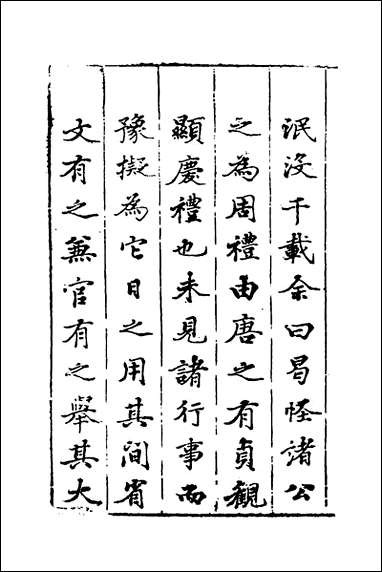 泯沒千載余曰曷怪諸公
之為周禮由唐之有貞觀
顯慶禮也未見諸行事而
豫擬為它日之用其間省
文有之兼官有之舉其大